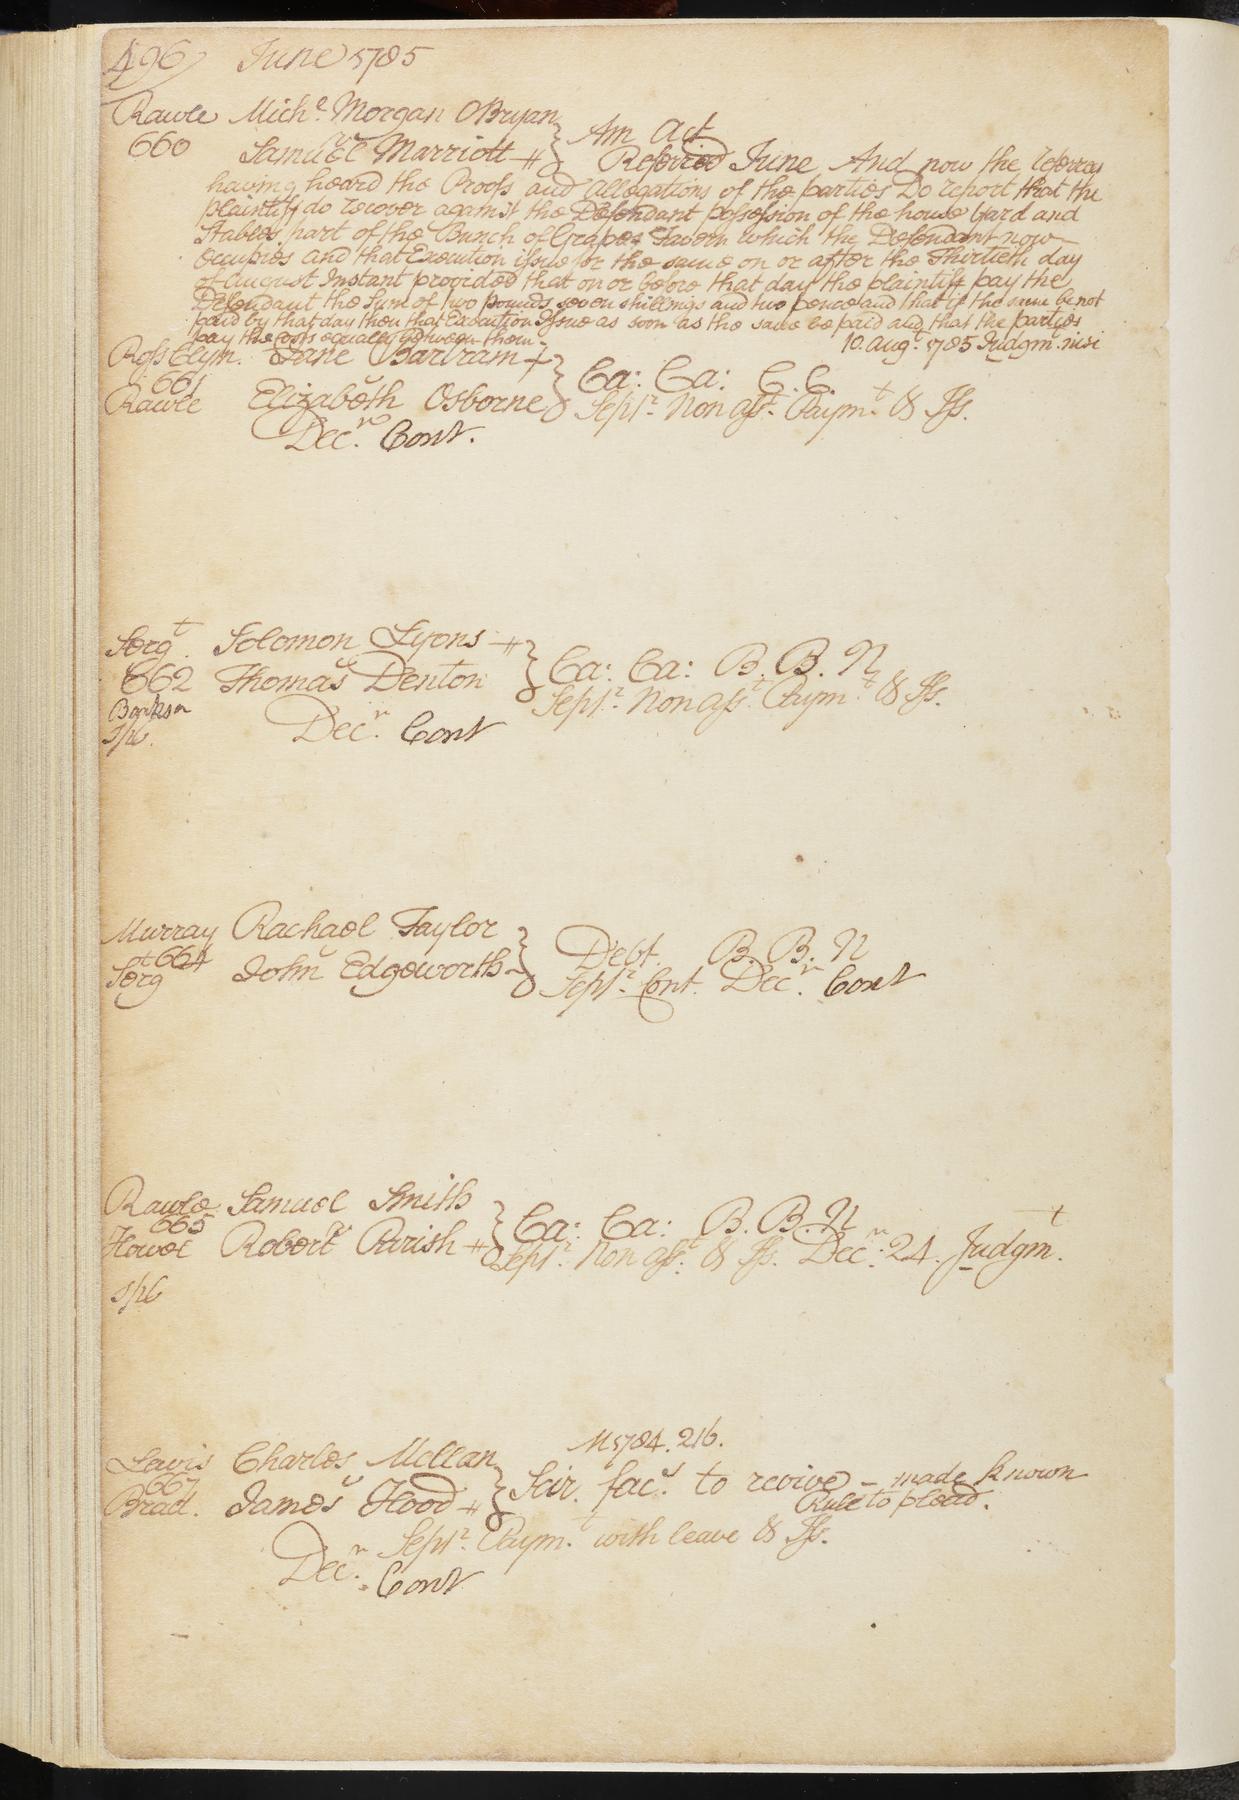 496 June 1785
Rawle Mich.l Morgan OBryan } Am Act
660 v Samuel Marriott } Referred June And now the referees
having heard the Proofs and allegations of the parties Do report that the
plaintiff do recover against the Defendant possession of the house yard and
Stables part of the Bunch of Grapes Tavern which the Defendant now
Occupies and that Execution issue for the same on or after the Thirtieth day
of August Instant provided that on or before that day the plaintiff pay the
Defendant the Sum of two pounds seven shillings and two pence and that if the same be not
paid by that day then that Execution Issue as soon as the same be paid and that the parties
pay the costs equally between them.
10. Aug.t 1785 Judgm.t nisi
Ross Clym. Jane Bartram } Ca: Ca: C.C.
661
Rawle v Elizabeth Osborne } Sept.r Non ass.t Paym.t & Iss.
Dec.r Cont.
Serg.t Solomon Lyons } Ca: Ca: B. B. N
662 v Thomas Denton } Sept.r Non ass.t Paym.t & Iss.
Bankson
spl. Dec.r Cont
Murray Rachael Taylor } Debt. B. B. N
664
Serg v John Edgeworth } Sept.r Cont. Dec.r Cont
Rawle Samuel Smith } Ca: Ca: B. B. N
665
Howel v Robert Parish } Sept.r Non ass.t & Iss. Dec.r 24. Judgm.t
spl
M 1784. 216.
Lewis Charles McClan } Scir. fac.s to revive – made known
667
Brad. v James Hood } Rule to plead.
Sept.r Paym.t with leave & Iss.
Dec.r Cont